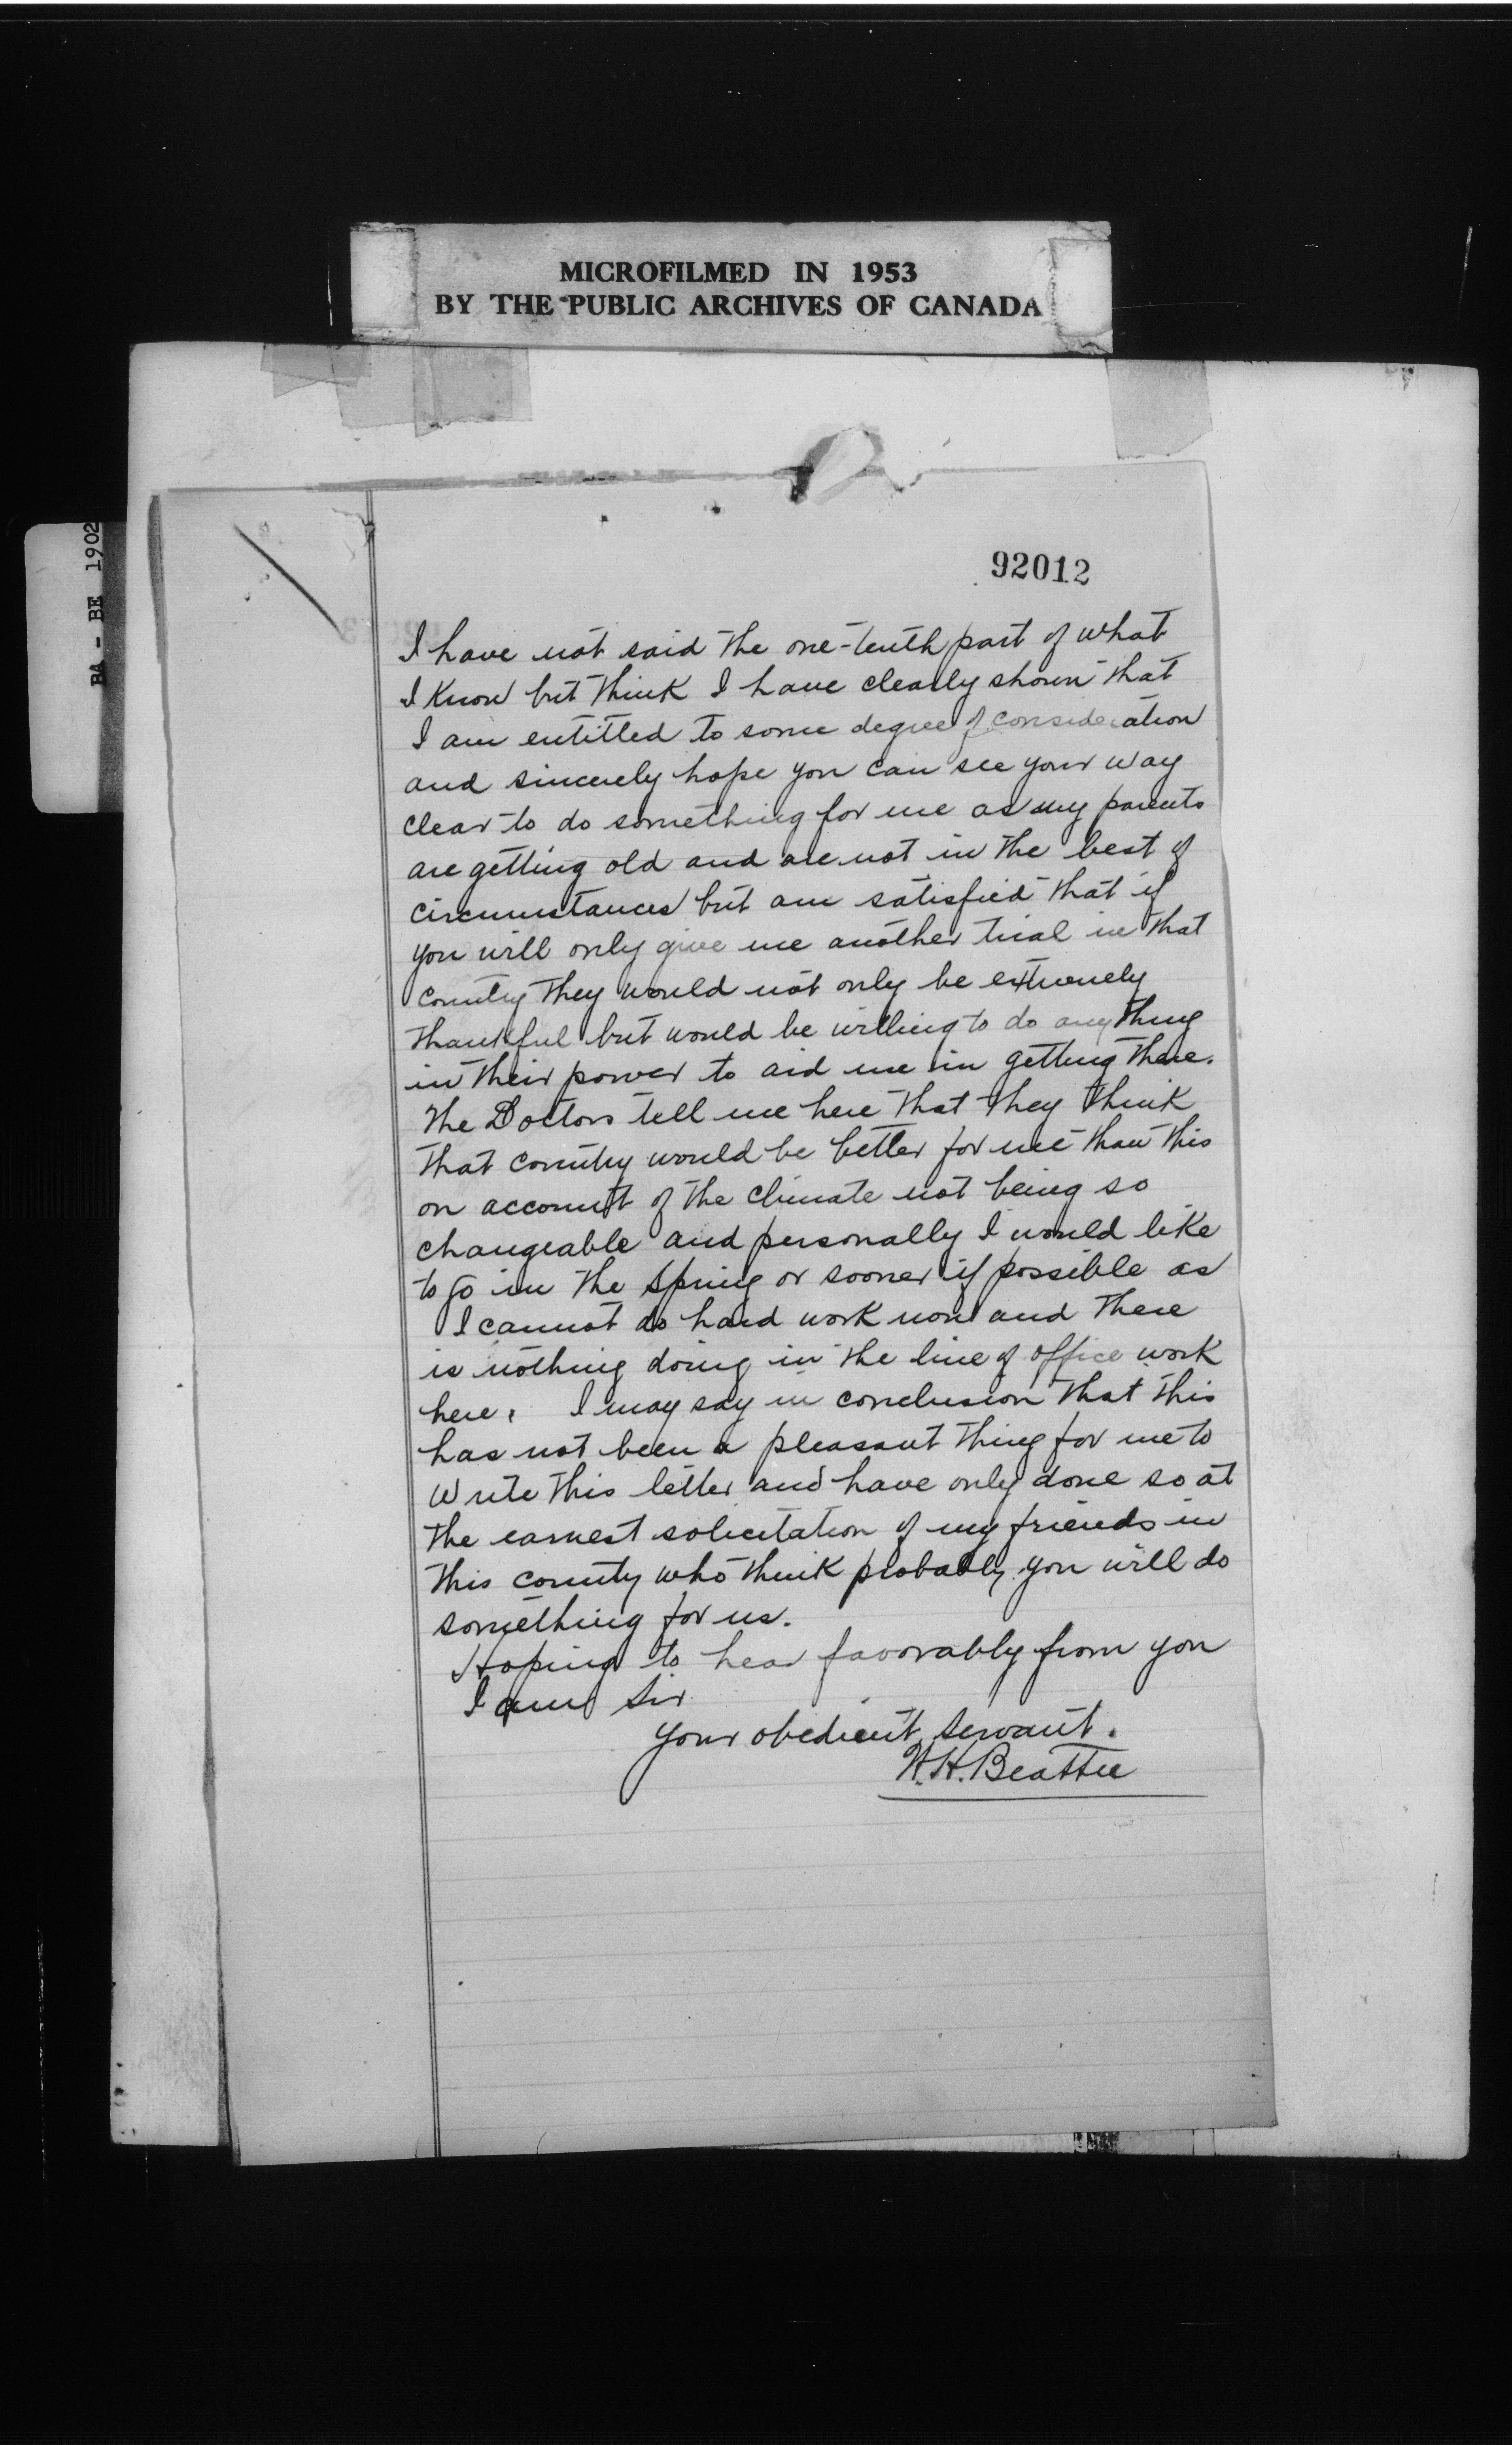 MICROFILMED IN 1953
BY THE PUBLIC ARCHIVES OF CANADA
BA - BE 1902
92012
I have not said the one-tenth part of what
I know but think I have clearly shown that
I am entitled to some degree of consideration
and sincerely hope you can see your way
clear to do something for me as my parents
are getting old and are not in the best of
circumstances but am satisfied that if
you will only give me another trial in that
country they would not only be extremely
thankful but would be willing to do anything
in their power to aid me in getting there.
The Doctors tell me here that they think
that country would be better for me than this
on account of the climate not being so
changeable and personally I would like
to go in the spring or sooner if possible as
I cannot do hard work now and there
is nothing doing in the line of office work
here. I may say in conclusion that this
has not been a pleasant thing for me to
write this letter and have only done so at
the earnest solicitation of my friends in
this county who think probably you will do
something for us.
Hoping to hear favorably from you
I am Sir
your obedient servant.
W.H. Beattie